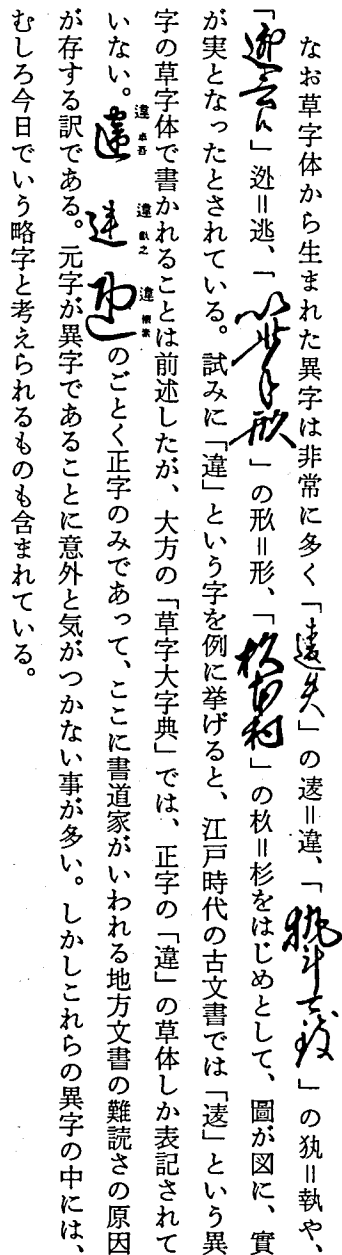 なお草字体から生まれた異字は非常に多く「違失」の=違、「」の=執や、
「」迯=逃、「以此手形」の=形、「杦田村」の杦=杉をはじめとして、圖が図に、實
が実となったとされている。試みに「違」という字を例に挙げると、江戸時代の古文書では「」という異
字の草字体で書かれることは前述したが、大方の「草字大字典」では、正字の「違」の草体しか表記されて
いない。違 違 違のごとく正字のみであって、ここに書道家がいわれる地方文書の難読さの原因
が存する訳である。元字が異字であることに意外と気がつかない事が多い。しかしこれらの異字の中には、
むしろ今日でいう略字と考えられるものも含まれている。